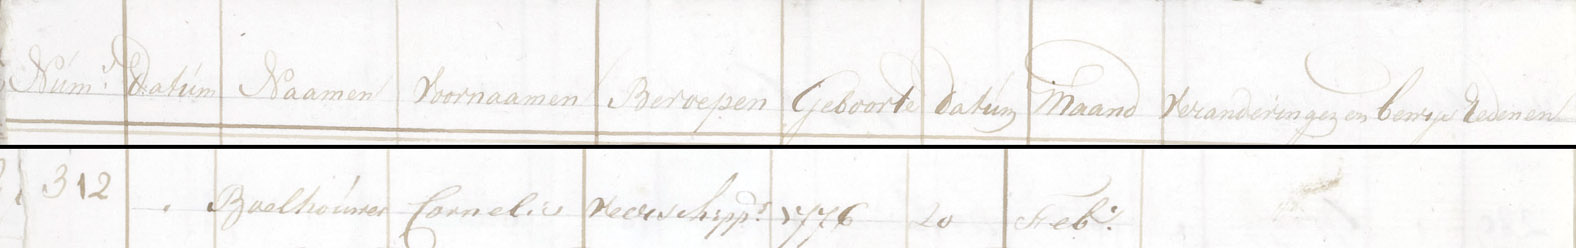 Num.r Datum Naamen Voornaamen Beroepen Geboorte Datum Maand Veranderingen en Redenen
312 Boelhouwer Cornelis Veerschipp.r 1776 20 Feb.